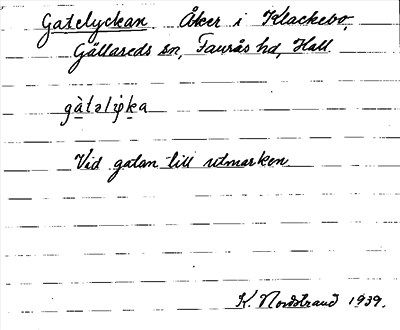 Gatelyckan. Åker i Klackebo,
Gällareds sn, Faurås hd, Hall.
Vid gatan till utmarken
K. Nordstrand 1939.